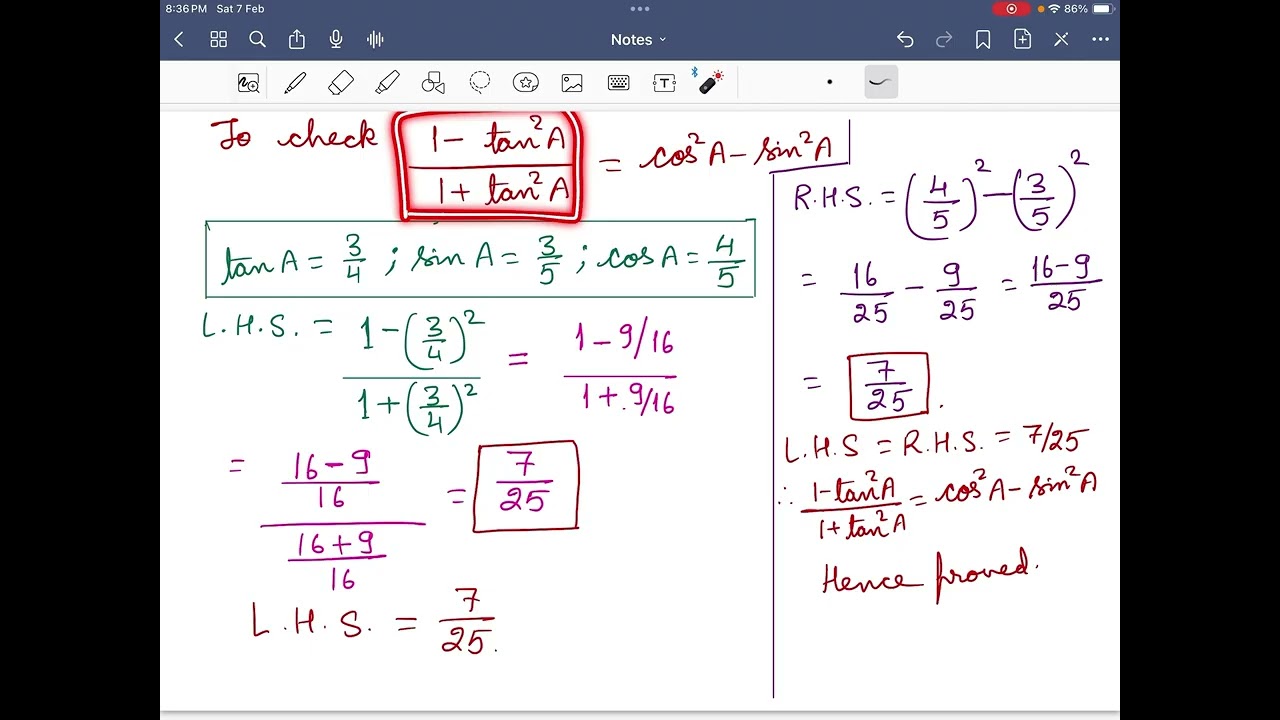 8:36 PM Sat 7 Feb
86%
Notes
To check (1 - tan²A)/(1 + tan²A) = cos²A - sin²A
tan A = 3/4 ; sin A = 3/5 ; cos A = 4/5
L.H.S. = (1 - (3/4)²)/(1 + (3/4)²) = (1 - 9/16)/(1 + 9/16)
= ((16 - 9)/16)/((16 + 9)/16) = 7/25
L.H.S. = 7/25.
R.H.S. = (4/5)² - (3/5)²
= 16/25 - 9/25 = (16-9)/25
= 7/25.
L.H.S = R.H.S. = 7/25
∴ (1-tan²A)/(1+tan²A) = cos²A - sin²A
Hence proved.